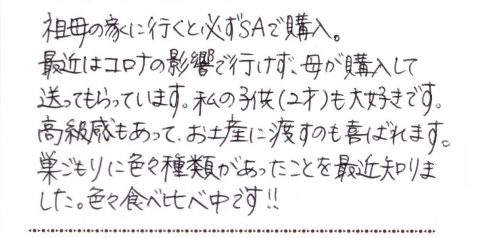 祖母の家に行くと必ずSAで購入。
最近はコロナの影響で行けず、母が購入して
送ってもらっています。私の子供(2才)も大好きです。
高級感もあって、お土産に渡すのも喜ばれます。
巣ごもりに色々種類があったことを最近知りま
した。色々食べ比べ中です!!